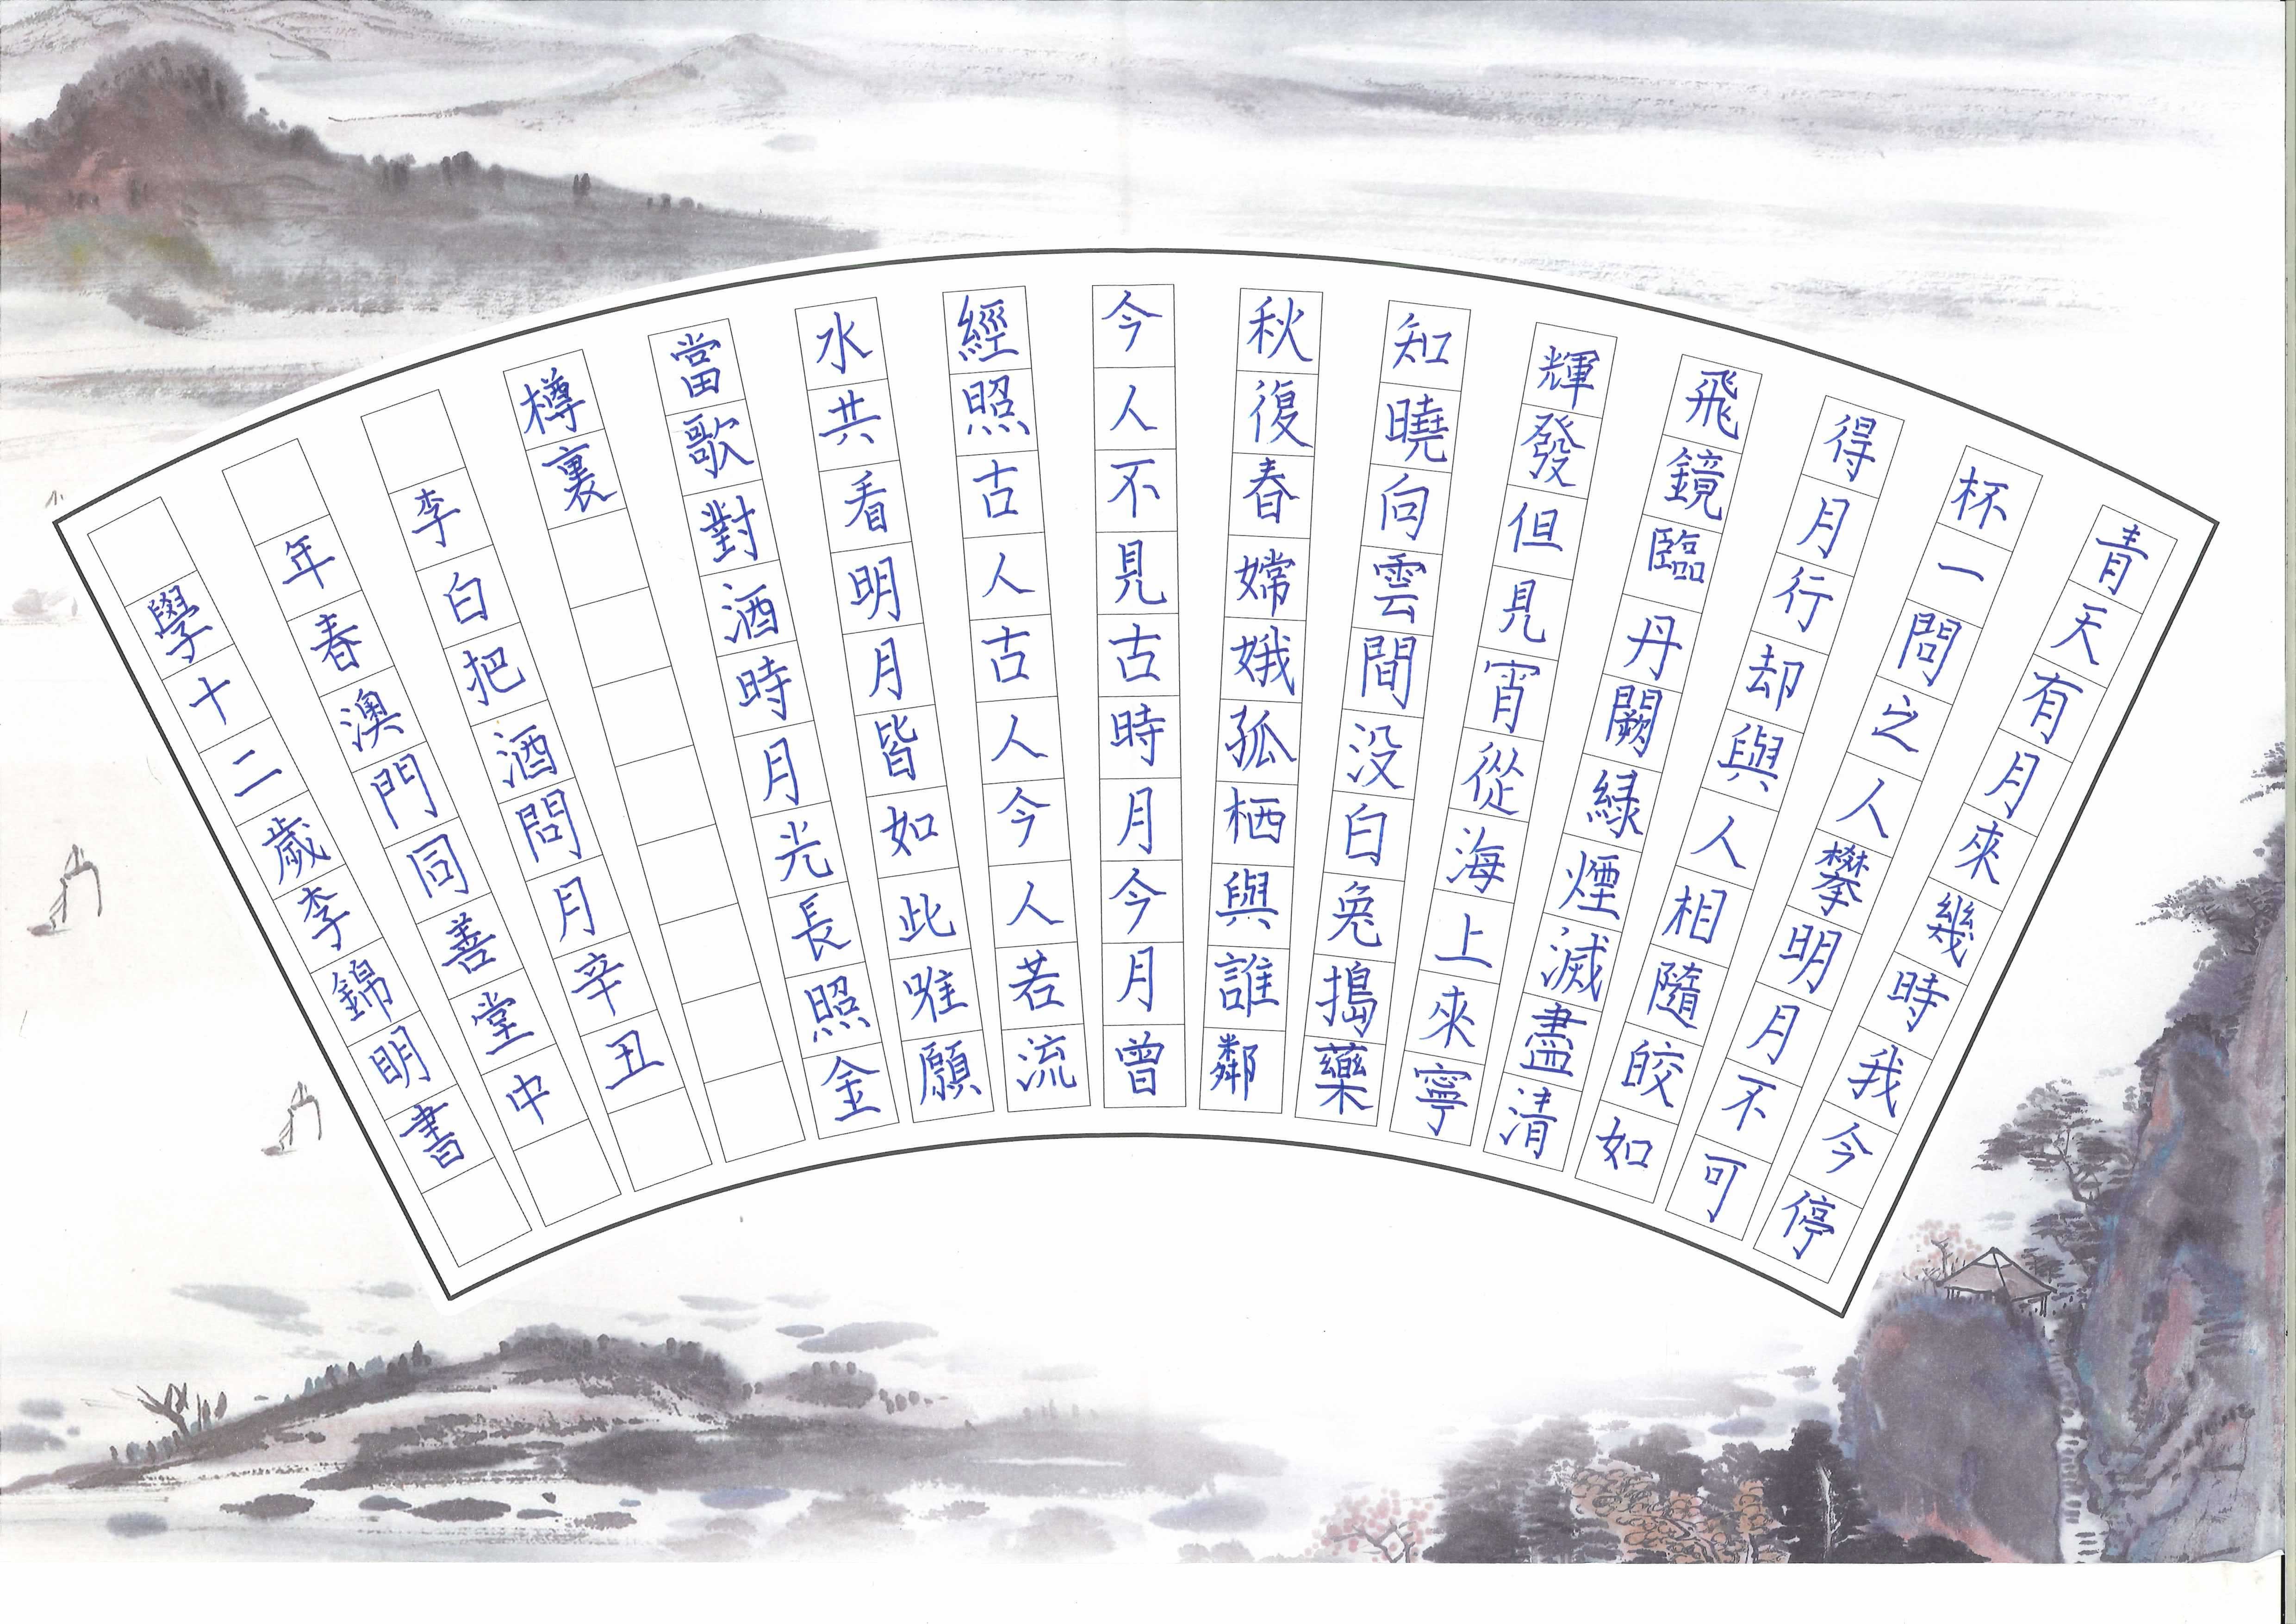 青天有月來幾時我今停
杯一問之人攀明月不可
得月行却與人相隨皎如
飛鏡臨丹闕緑煙滅盡清
輝發但見宵從海上來寧
知曉向雲間没白兔搗藥
秋復春嫦娥孤栖與誰鄰
今人不見古時月今月曾
經照古人古人今人若流
水共看明月皆如此唯願
當歌對酒時月光長照金
樽裏
李白把酒問月辛丑
年春澳門同善堂中
學十二歲李錦明書